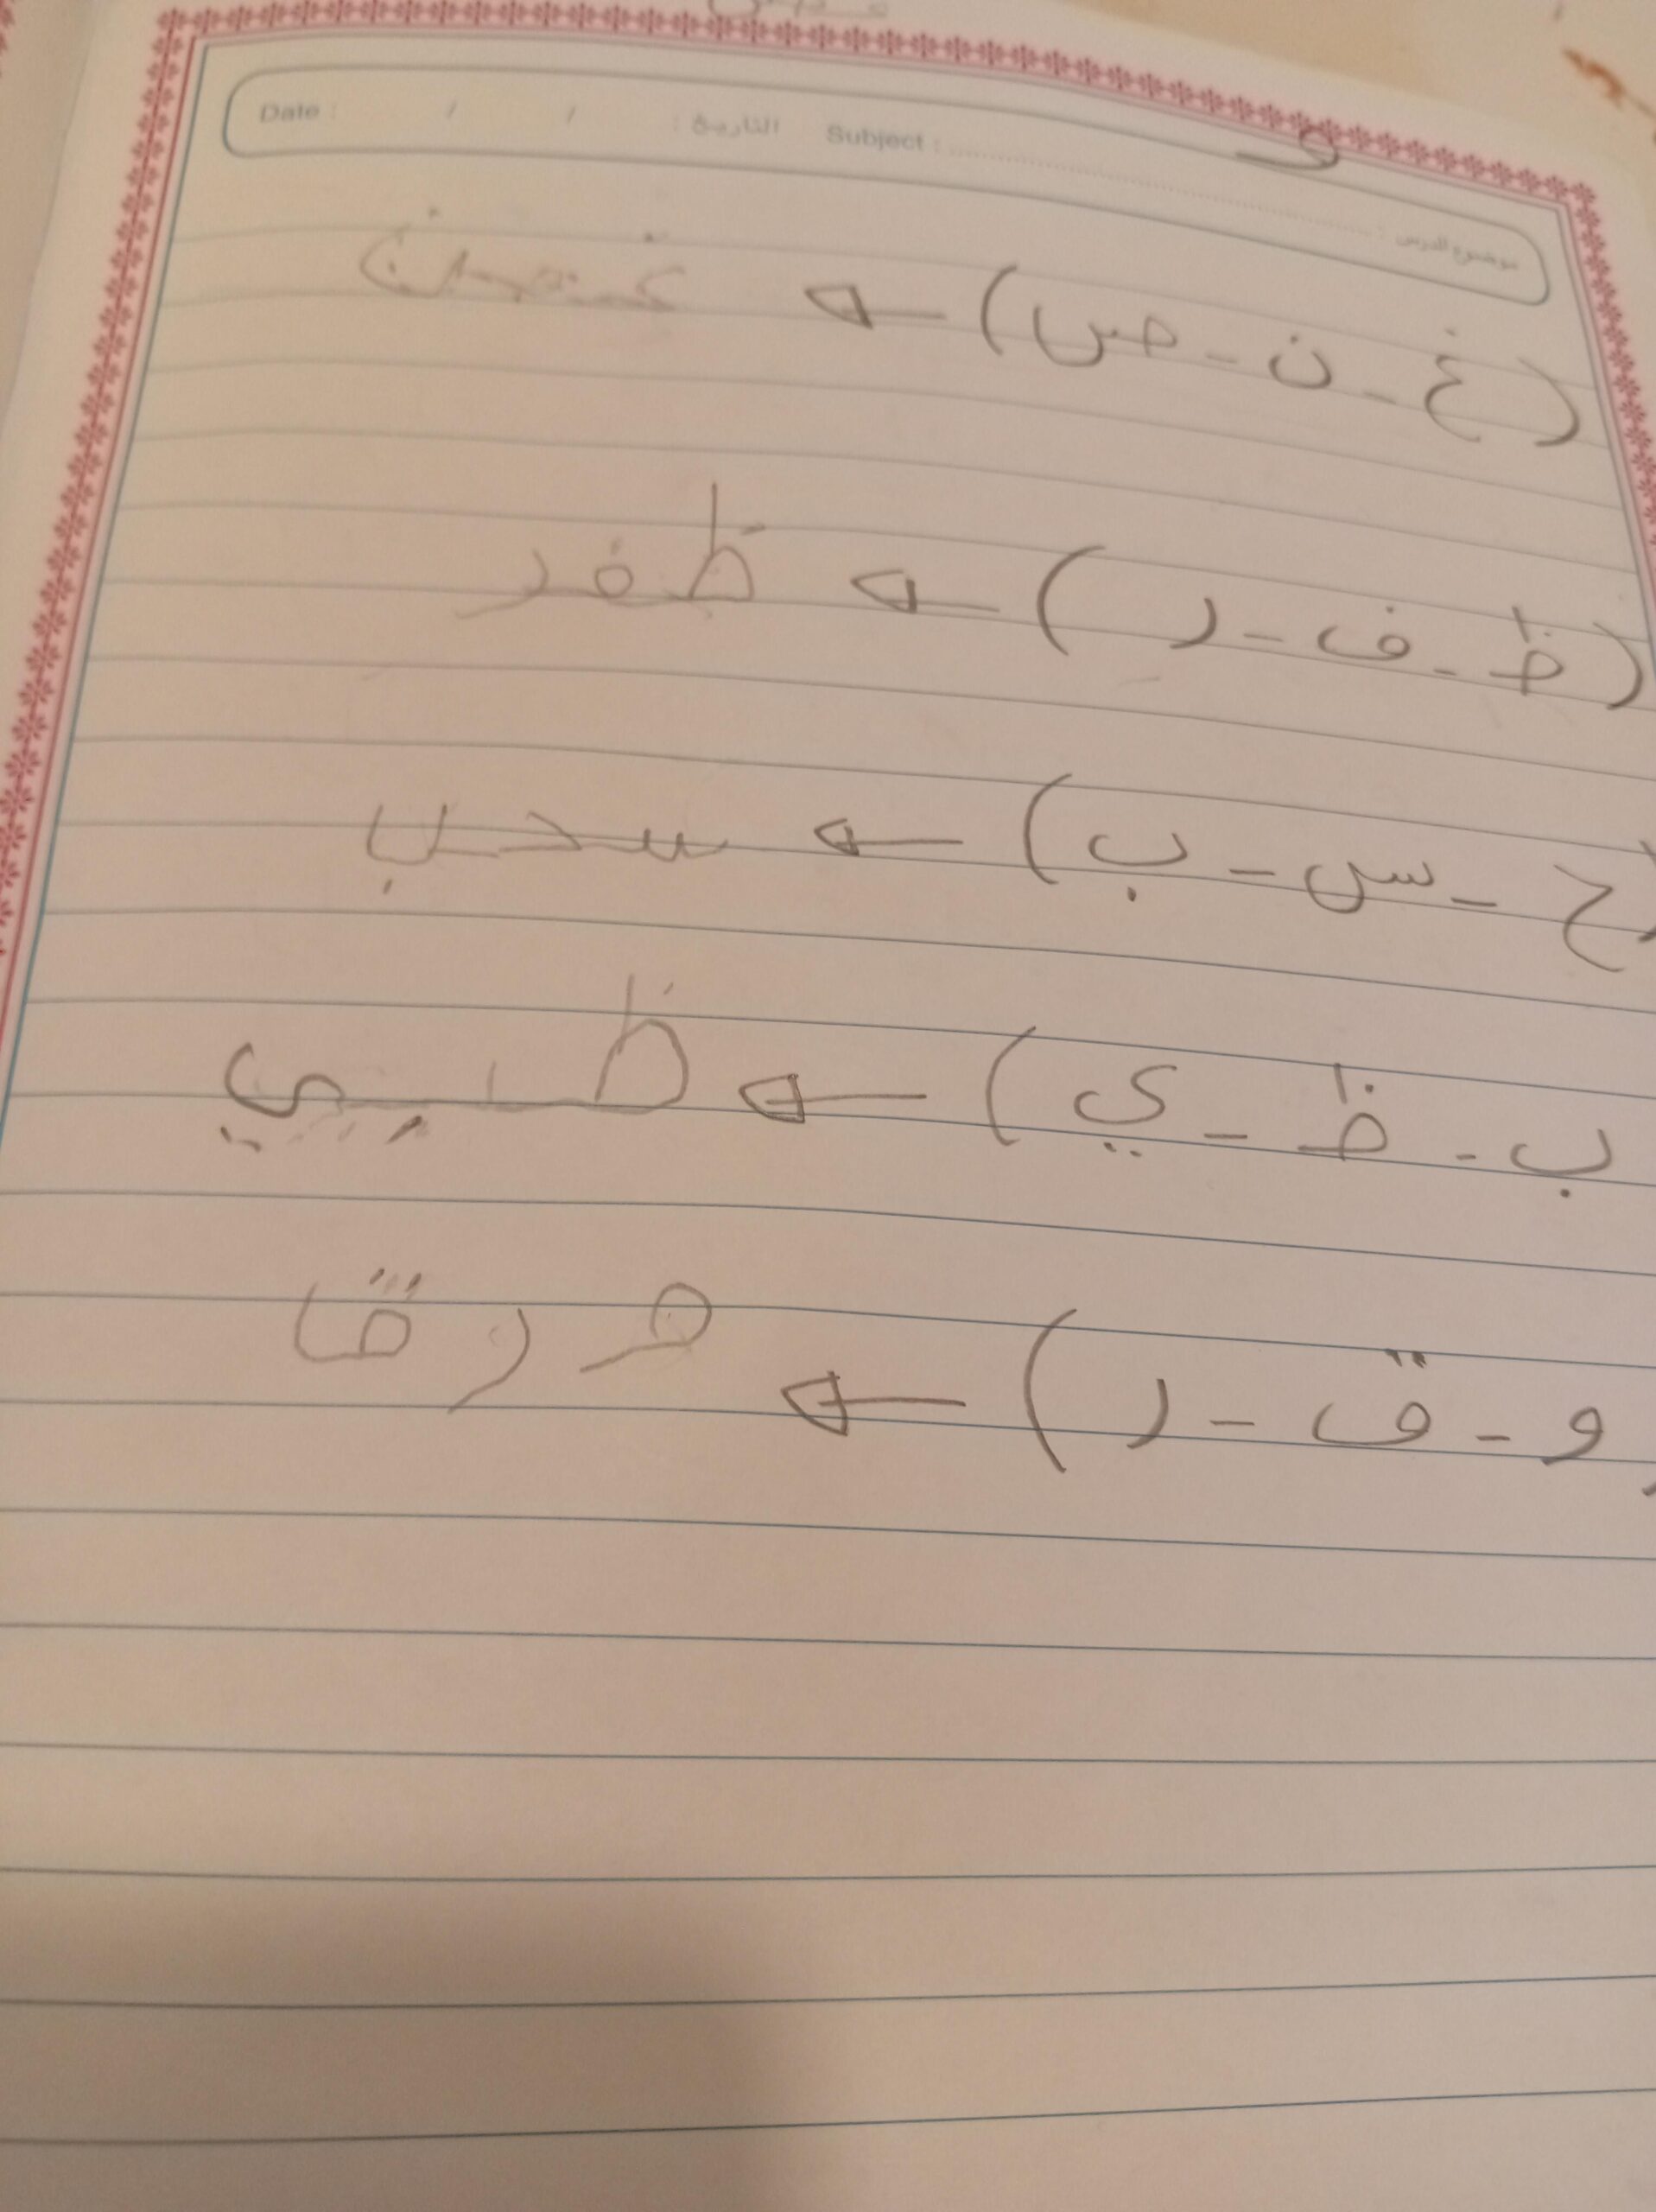 Date : / / التاريخ : Subject : موضوع الدرس :
(غ - ن - ص) ← غصن
(ظ - ف - ر) ← ظفر
(ح - س - ب) ← سحب
ب - ظ - ي) ← ظبي
و - ق - ر) ←